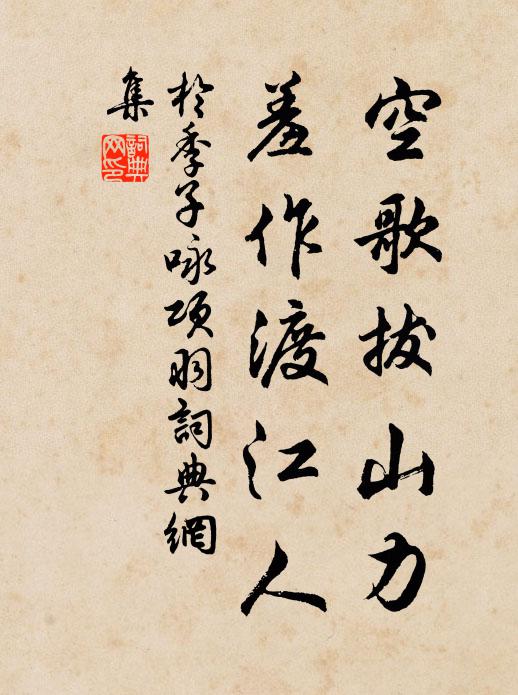 空歌拔山力
羞作渡江人
於季子咏項羽詞典網
集
詞典
网印